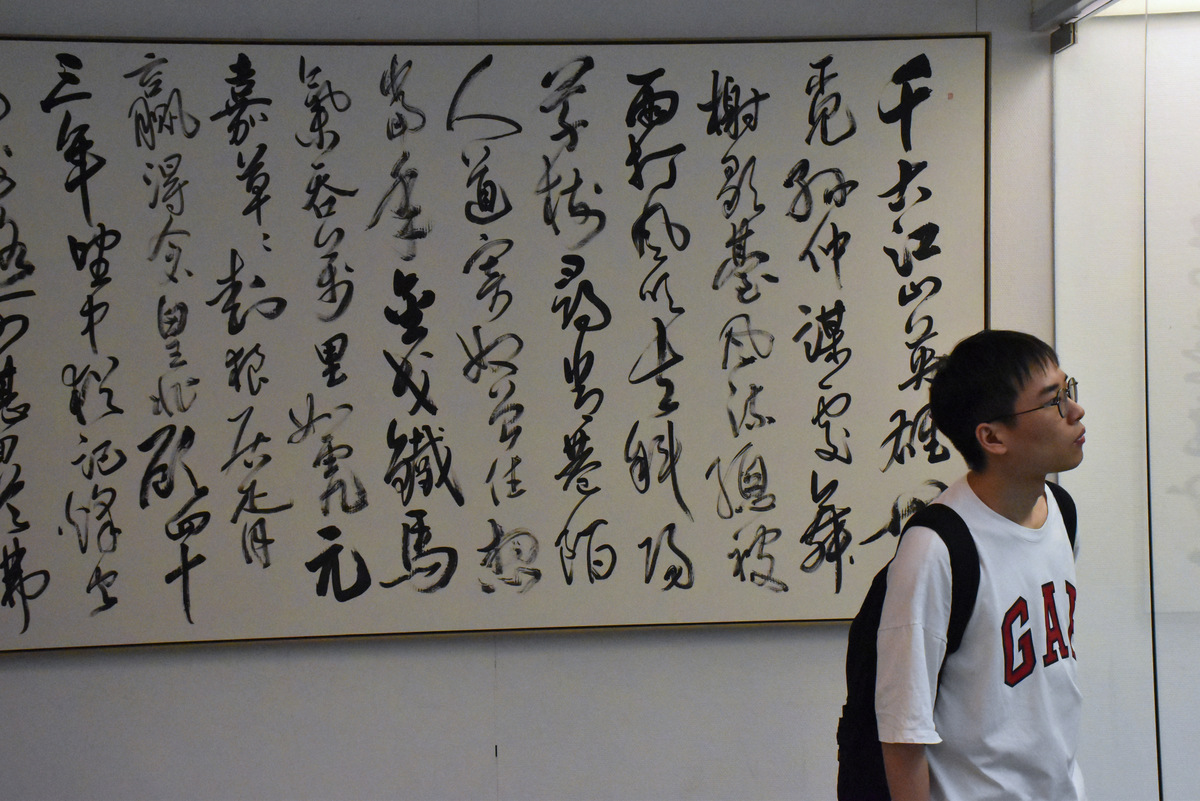 千古江山英雄
覓孫仲謀處舞
榭歌臺風流總被
雨打風吹去斜陽
草樹尋常巷陌
人道寄奴曾住想
當年金戈鐵馬
氣吞萬里如虎元
嘉草〻封狼居胥
贏得倉皇北顧四十
三年望中猶記烽火
路可堪回首
GA